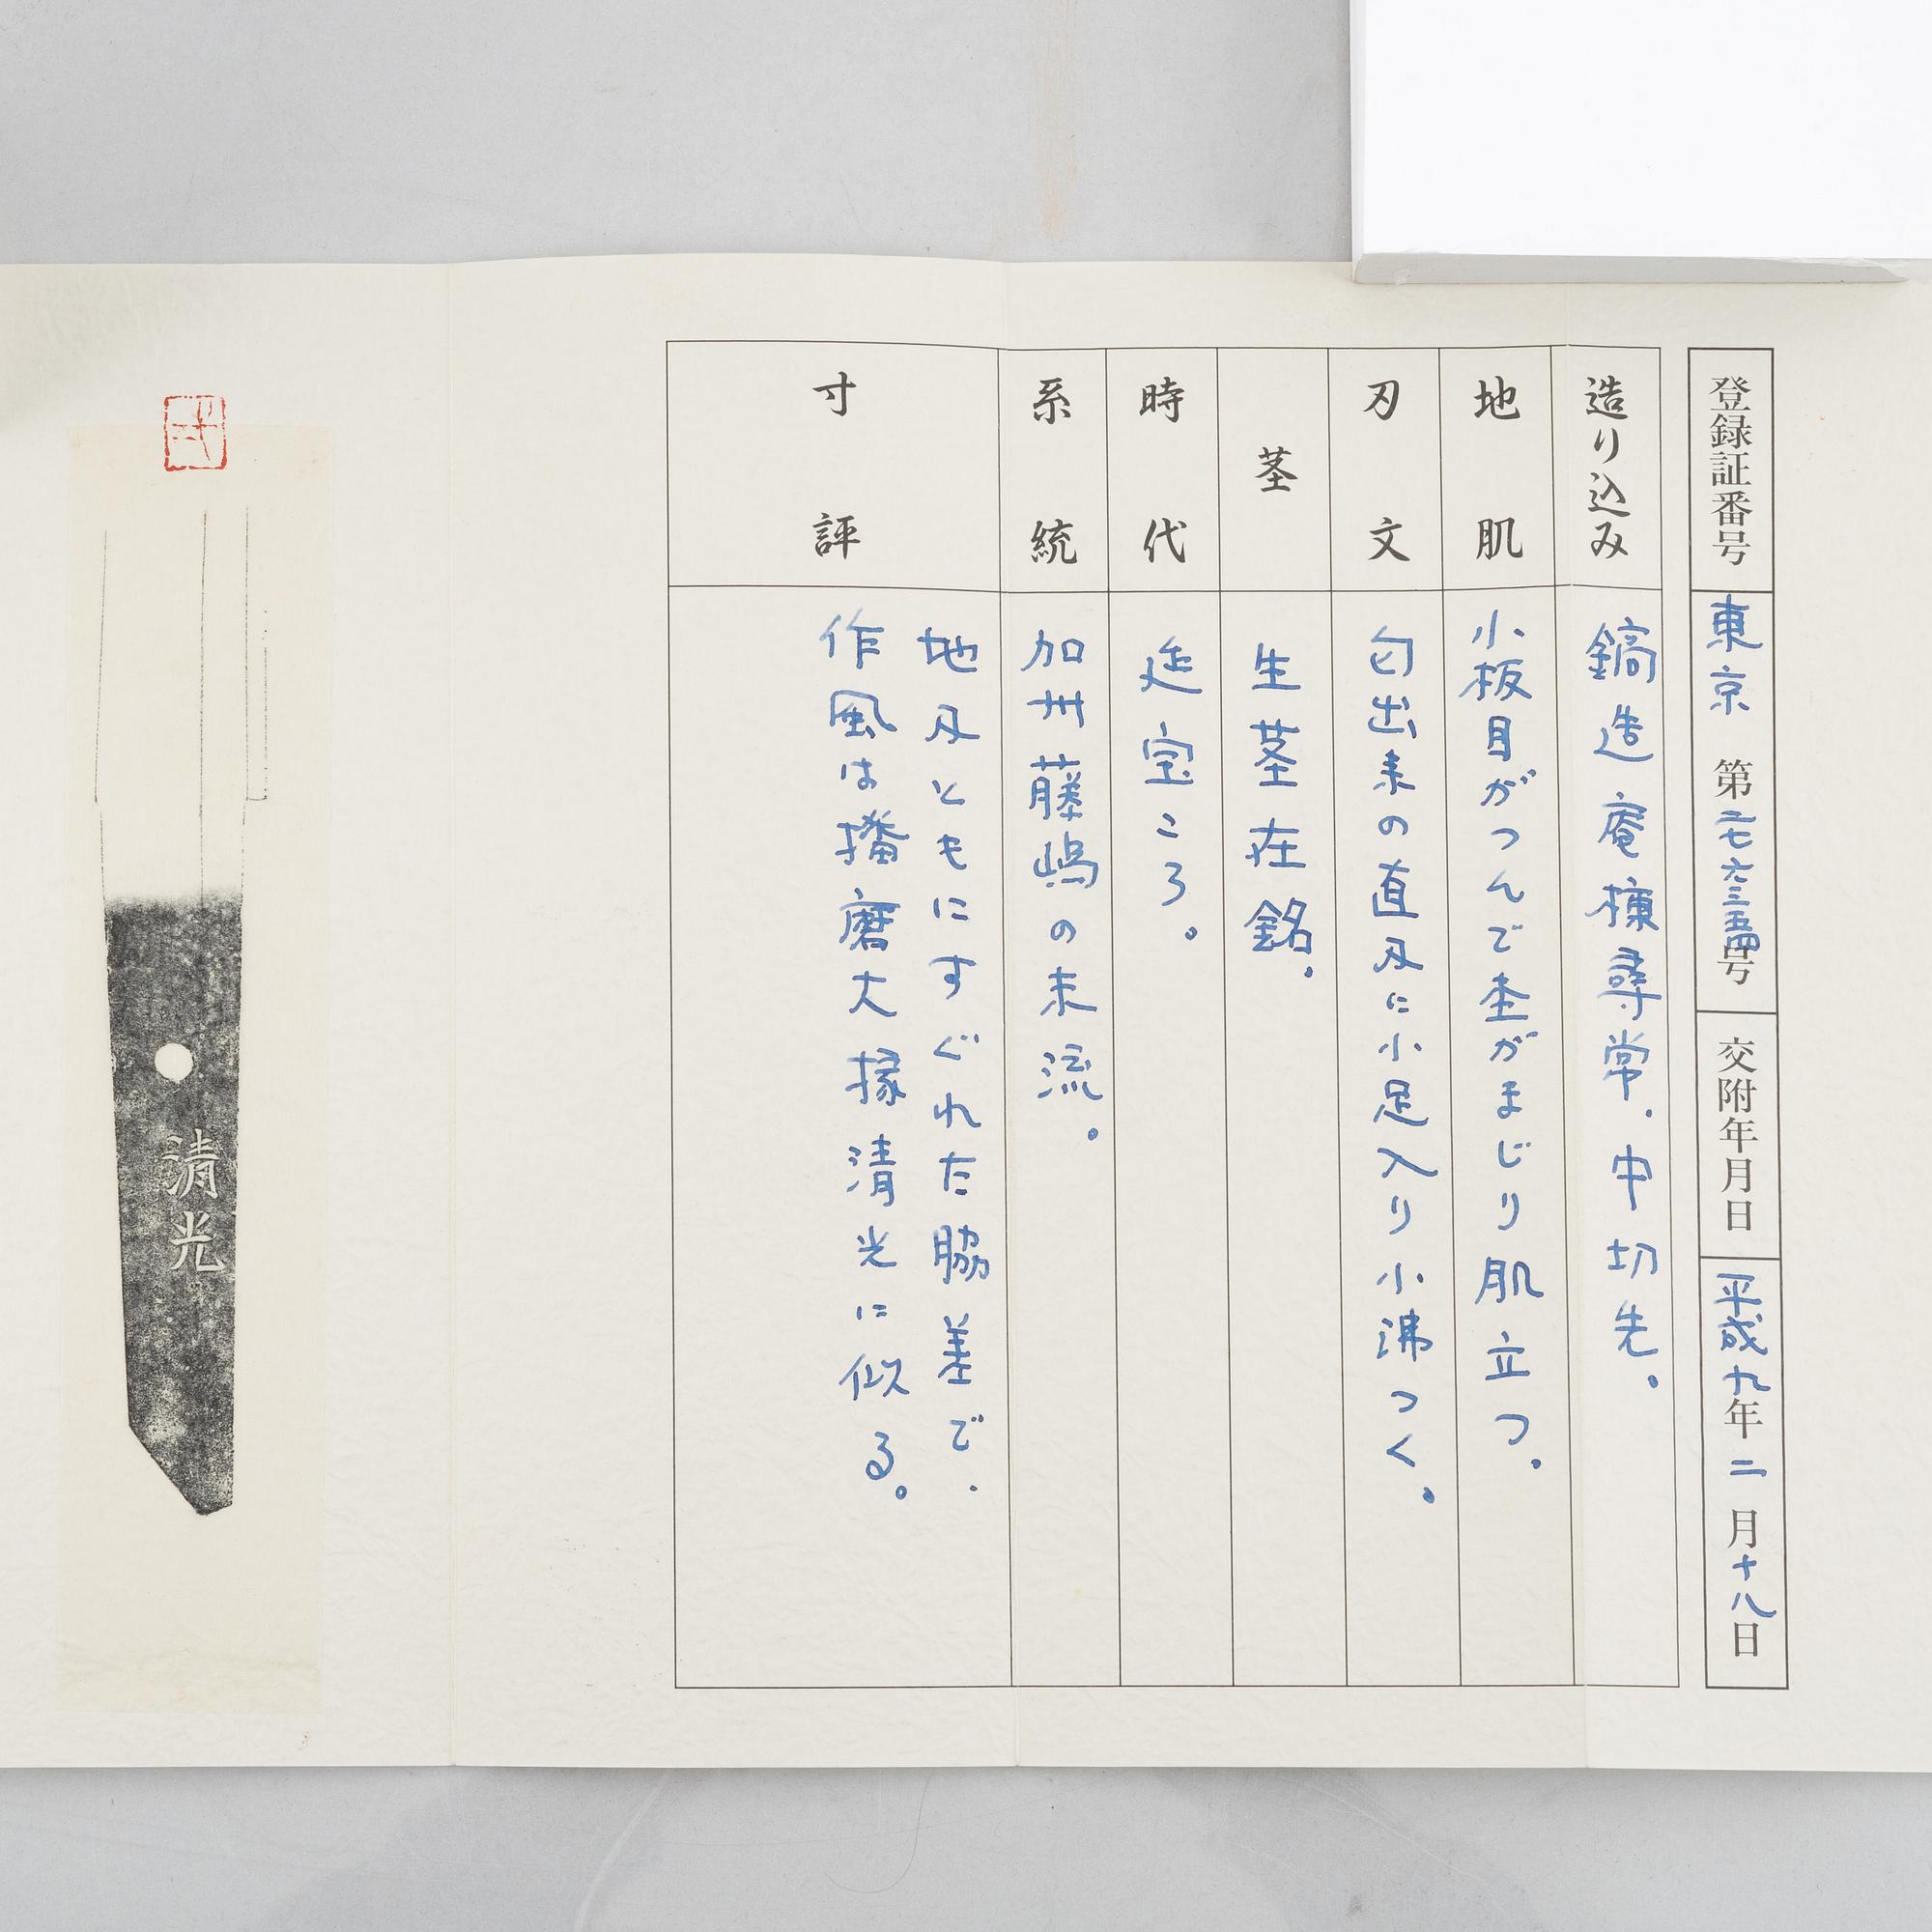 登録証番号 東京 第二七六三五四号 交附年月日 平成九年二月十八日
造り込み 鎬造庵棟尋常.中切先。
地肌 小板目がつんで杢がまじり肌立つ。
刃文 匂出来の直刃に小足入り小沸つく。
茎 生茎在銘。
時代 延宝ころ。
系統 加州藤嶋の末流。
寸評 地刃ともにすぐれた脇差で.
作風は播磨大掾清光に似る。
清光